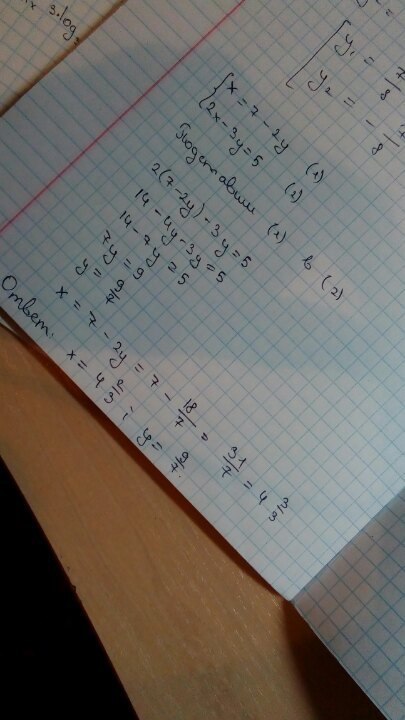 3·log
y₁ = 7/8
y₂ = -
{ x = 7 - 2y (1)
2x - 3y = 5 (2)
Подставим (1) в (2)
2(7-2y) - 3y = 5
14 - 4y - 3y = 5
14 - 7y = 5
7y = 9
y = 9/7
x = 7 - 2y = 7 - 18/7 = 31/7 = 4 3/3
Ответ: x = 4 ; y = 9/7.